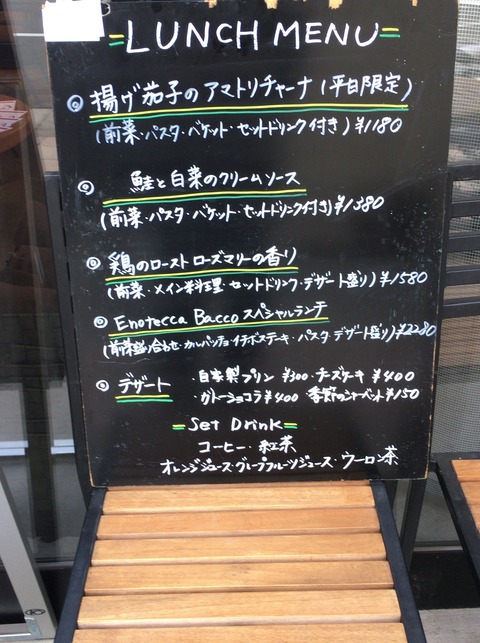 LUNCH MENU
◎ 揚げ茄子のアマトリチャーナ(平日限定)
(前菜・パスタ・バケット・セットドリンク付き)¥1180
◎ 鮭と白菜のクリームソース
(前菜・パスタ・バケット・セットドリンク付き)¥1380
◎ 鶏のロースト ローズマリーの香り
(前菜・メイン料理・セットドリンク・デザート盛り)¥1580
◎ Enotecca Bacco スペシャルランチ
(前菜盛り合わせ・カルパッチョ・イチボステーキ・パスタ・デザート盛り)¥2280
◎ デザート ・自家製プリン ¥300・チーズケーキ ¥400
・ガトーショコラ ¥400 季節のシャーベット ¥150
=Set Drink=
コーヒー・紅茶
オレンジジュース・グレープフルーツジュース・ウーロン茶